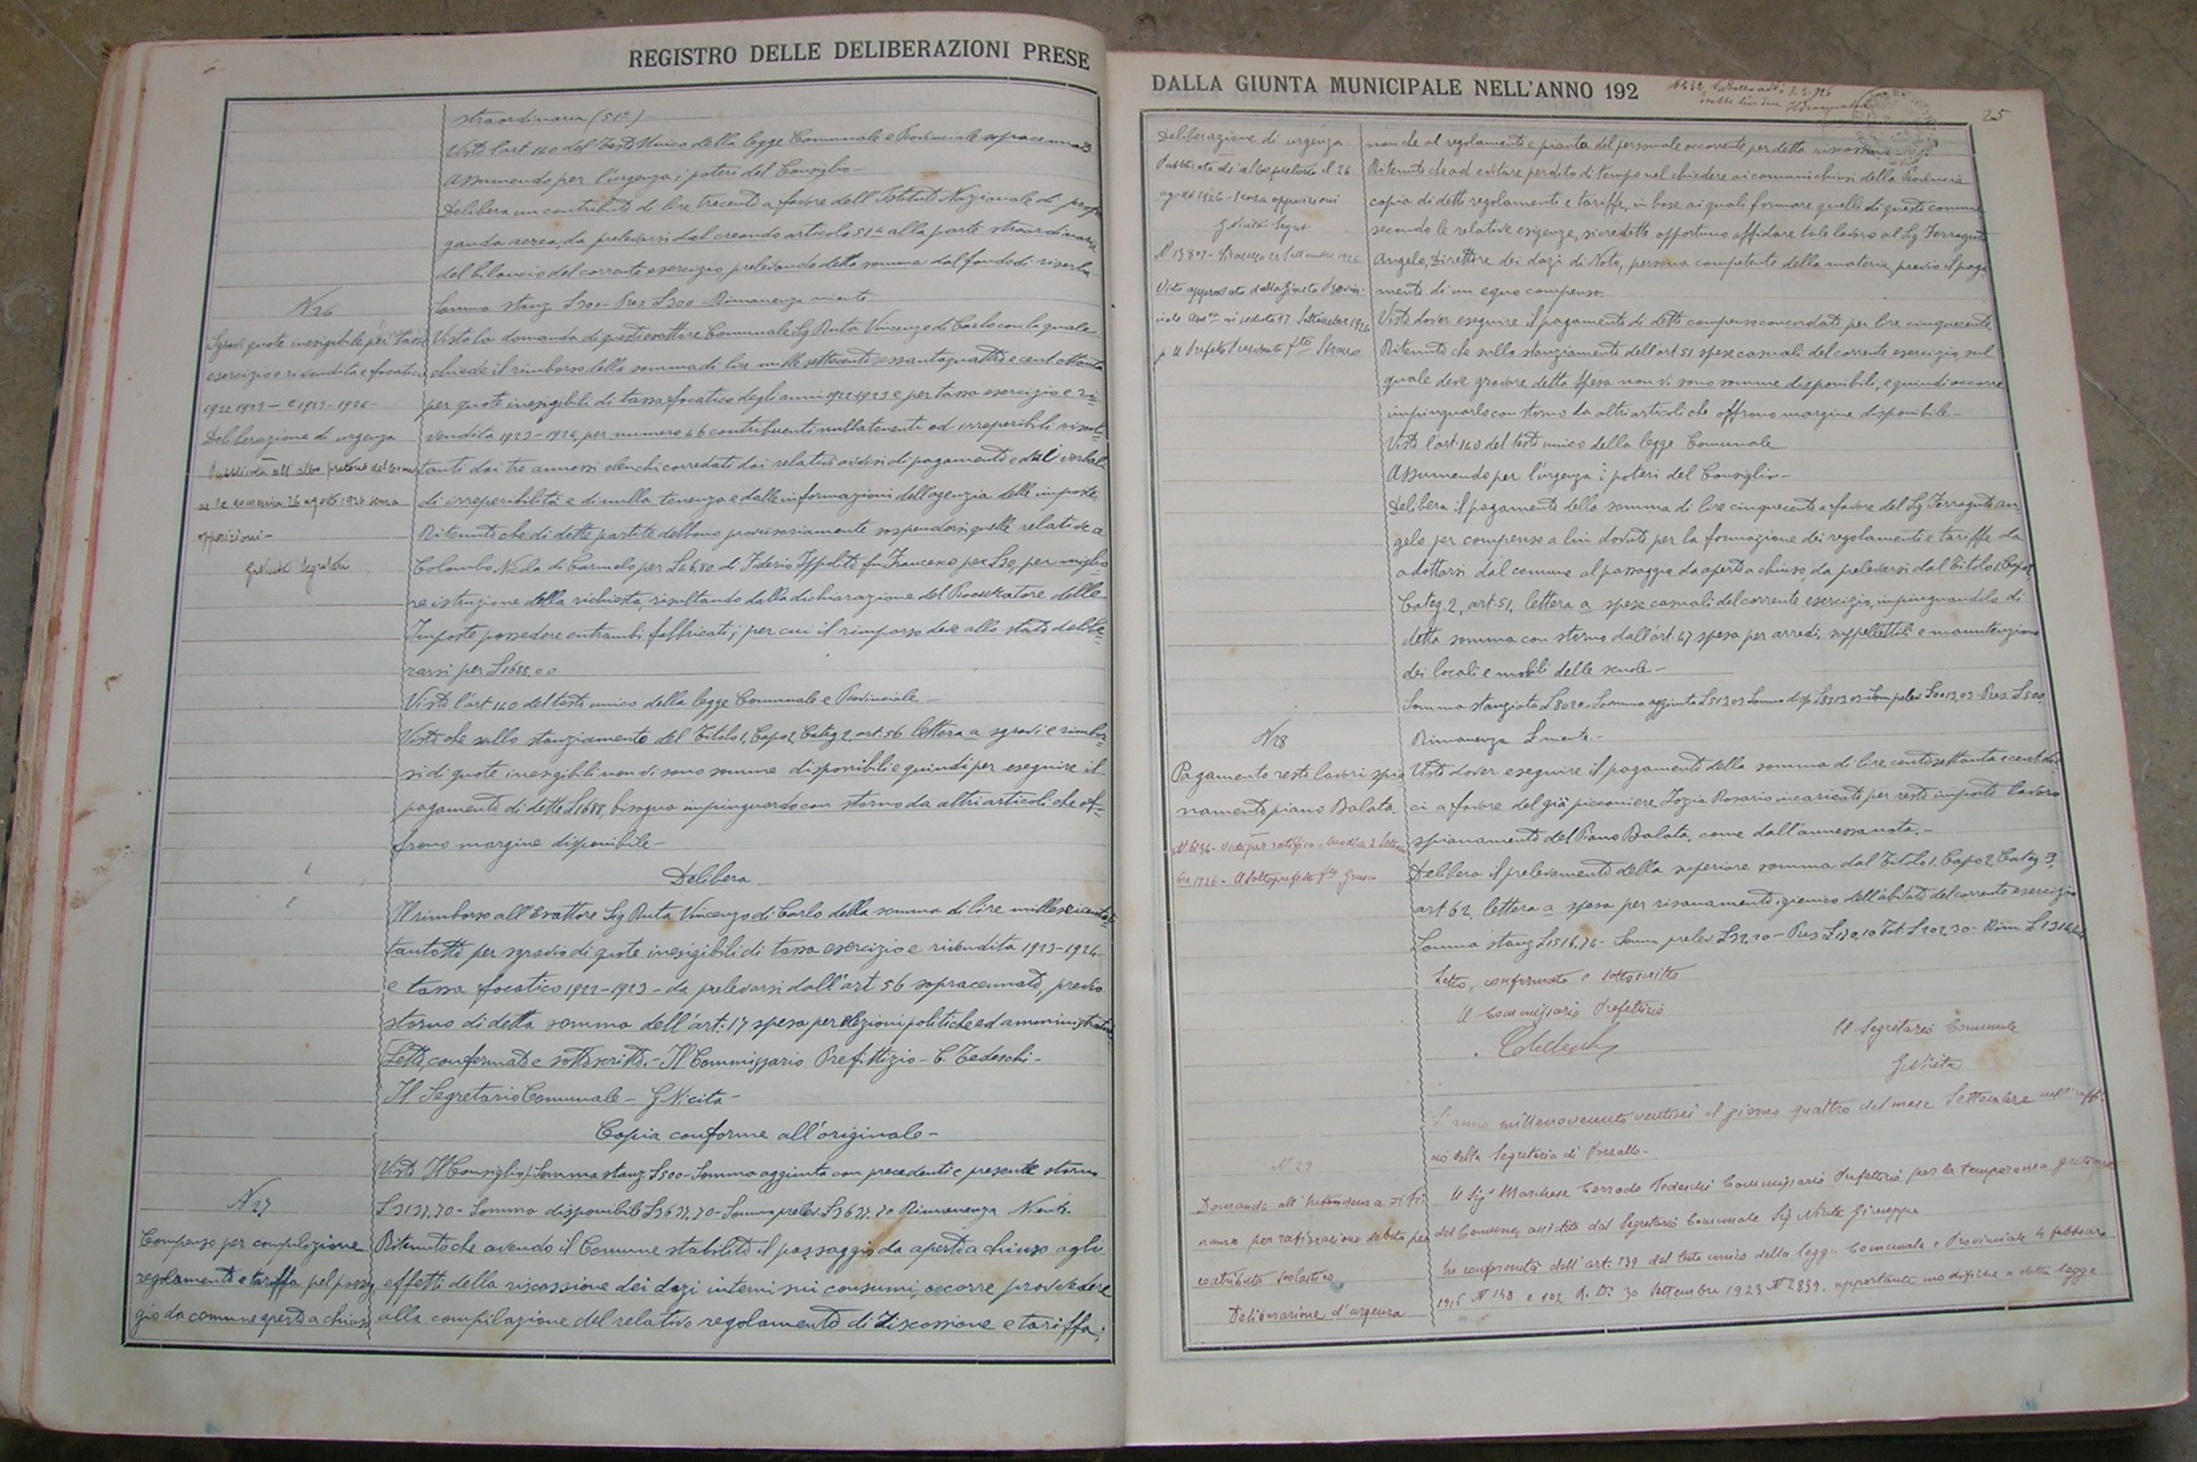 REGISTRO DELLE DELIBERAZIONI PRESE
straordinaria (51ª)
Visto l'art. 140 del Testo Unico della legge Comunale e Provinciale sopracennato
Assumendo per l'urgenza i poteri del Consiglio
Delibera un contributo di lire trecento a favore dell'Istituto Nazionale di propa
ganda aerea, da prelevarsi dal creando articolo 51ª alla parte straordinaria
del bilancio del corrente esercizio, prelevando detta somma dal fondo di riserva
Somma stanz. L 300 - Prez L 300 - Rimanenza niente
N 26
Sgravi quote inesigibile per tassa
esercizio e rivendita e focatico
1922 1923 - e 1923-1924
Deliberazione di urgenza
Pubblicata all'albo pretorio del Comu
ne la domenica 26 agosto 1926 senza
opposizioni -
G Nicita Segretario
Vista la domanda di questo esattore Comunale Sig Ruta Vincenzo di Carlo con la quale
chiede il rimborso della somma di lire mille settecento sessantaquattro e cent ottanta
per quote inesigibili di tassa focatico degli anni 1922 1923 e per tassa esercizio e ri
vendita 1923-1924, per numero 46 contribuenti nullatenenti ed irreperibili risul
tanti dai tre annessi elenchi corredati dai relativi avvisi di pagamento e dal verbale
di irreperibilità e di nulla tenenza e dalle informazioni dell'agenzia delle imposte
Ritenuto che di dette partite debbono provvisoriamente sospendersi quelle relative a
Colombo Nicola di Carmelo per L 46,80 di Iderio Ippolito fu Francesco per L 30, per miglio
re istruzione della richiesta, risultando dalla dichiarazione del Procuratore delle
Imposte possedere entrambi fabbricati; per cui il rimborso deve allo stato delibe
rarsi per L 1688,00
Visto l'art 140 del testo unico della legge Comunale e Provinciale
Visto che sullo stanziamento del Titolo 1, Capo 2, Categ 2, art. 56 lettera a sgravi e rimbor
si di quote inesigibili non vi sono somme disponibili e quindi per eseguire il
pagamento di dette L 1688, bisogna impinguarlo con storno da altri articoli che of
frono margine disponibile -
Delibera
Il rimborso all'Esattore Sig Ruta Vincenzo di Carlo della somma di lire milleseicentot
tantotto per sgravio di quote inesigibili di tassa esercizio e rivendita 1923-1924
e tassa focatico 1922-1923 - da prelevarsi dall'art 56 sopracennato, previo
storno di detta somma dell'art: 17 spesa per elezioni politiche ed amministrative
Letto, confermato e sottoscritto. - Il Commissario Prefettizio - C. Tedeschi -
Il Segretario Comunale - G Nicita -
Copia conforme all'originale -
Visto Il Consiglio/Somma stanz. L 500 - Somma aggiunta con precedenti e presente storno
L 3137,70 - Somma disponibile L 3637,70 - Somma prelev. L 3637,70 Rimanenza Niente.
N 27
Compenso per compilazione
regolamento e tariffa pel passag
gio da comune aperto a chiuso
Ritenuto che avendo il Comune stabilito il passaggio da aperto a chiuso agli
effetti della riscossione dei dazi interni sui consumi, occorre provvedere
alla compilazione del relativo regolamento di riscossione e tariffa,
DALLA GIUNTA MUNICIPALE NELL'ANNO 192
25
Deliberazione di urgenza
Pubblicata all'albo pretorio il 26
agosto 1926 - senza opposizioni
G Nicita Segret
Siracusa 22 Settembre 1926
Vista approvata dalla Giunta Provin
ciale Amm.va in seduta 17 Settembre 1926
p. Il Prefetto Presidente f.to
nonchè al regolamento e pianta del personale occorrente per detta riscossione
Ritenuto che ad evitare perdita di tempo nel chiedere ai comuni chiusi della Provincia
copia di detti regolamenti e tariffe, in base ai quali formare quelli di questo comune
secondo le relative esigenze, si credette opportuno affidare tale lavoro al Sig Ferraguto
Angelo, Direttore dei dazi di Noto, persona competente della materia, previo il paga
mento di un equo compenso.
Visto dover eseguire il pagamento di detto compenso concordato per lire cinquecento
Ritenuto che sullo stanziamento dell'art. 51 spese casuali del corrente esercizio, sul
quale deve gravare detta spesa non vi sono somme disponibili, e quindi occorre
impinguarlo con storno da altri articoli che offrono margine disponibile -
Visto l'art 140 del testo unico della legge Comunale
Assumendo per l'urgenza i poteri del Consiglio -
Delibera il pagamento della somma di lire cinquecento a favore del Sig Ferraguto An
gelo per compenso a lui dovuto per la formazione dei regolamenti e tariffe da
adottarsi dal comune al passaggio da aperto a chiuso, da prelevarsi dal Titolo 1, Capo 2
Categ. 2, art. 51, lettera a spese casuali del corrente esercizio, impinguandolo di
detta somma con storno dall'art. 47 spesa per arredi, suppellettili e manutenzione
dei locali e mobili delle scuole -
Somma stanziata L 3020 - Somma aggiunta
Rimanenza L niente. -
N 28
Pagamento resto lavori spia
namento piano Balata.
Visto dover eseguire il pagamento della somma di lire centosettanta e cent die
ci a favore del già picconiere Iozia Rosario incaricato per resto importo lavoro
spianamento del Piano Balata, come dall'annessa nota. -
Delibera il prelevamento della superiore somma dal Titolo 1. Capo 2 Categ 3,
art. 62, lettera a spesa per risanamento igienico dell'abitato del corrente esercizio
Somma stanz L 1516,74 - Somm prelev L 32,20 - Prez L 170,10 Tot. L 202,30 - Rim. L 1314,44
Letto, confermato e sottoscritto
Il Commissario Prefettizio
Il Segretario Comunale
G Nicita
L'anno millenovecento ventisei il giorno quattro del mese Settembre nell'uffi
cio della Segreteria di
Domanda all'Intendenza di Fi
nanza per rateizzazione debito per
contributo scolastico
Deliberazione d'urgenza
Il Sig. Marchese Corrado Tedeschi Commissario Prefettizio per la temporanea gestione
del Comune, assistito dal Segretario Comunale Sig Nicita Giuseppe
In conformità dell'art: 139 del testo unico della legge Comunale e Provinciale 4 febbraio
1915 N 148 e 102 R. D. 30 Settembre 1923 N 2839, apportante modifiche a detta legge